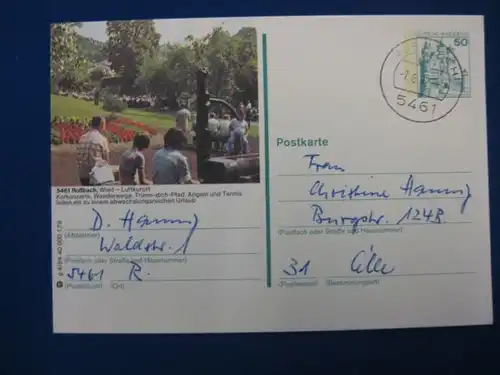 50
5461
5461 Roßbach, Wied – Luftkurort
Kurkonzerte, Wanderwege, Trimm-dich-Pfad, Angeln und Tennis
laden ein zu einem abwechslungsreichen Urlaub
D. Hannig
(Absender)
Waldstr. 1
(Postfach oder Straße und Hausnummer)
5461 R.
(Postleitzahl) (Ort)
Postkarte
Frau
Christine Hannig
Burgstr. 124B
(Postfach oder Straße und Hausnummer)
31 Celle
(Postleitzahl) (Bestimmungsort)